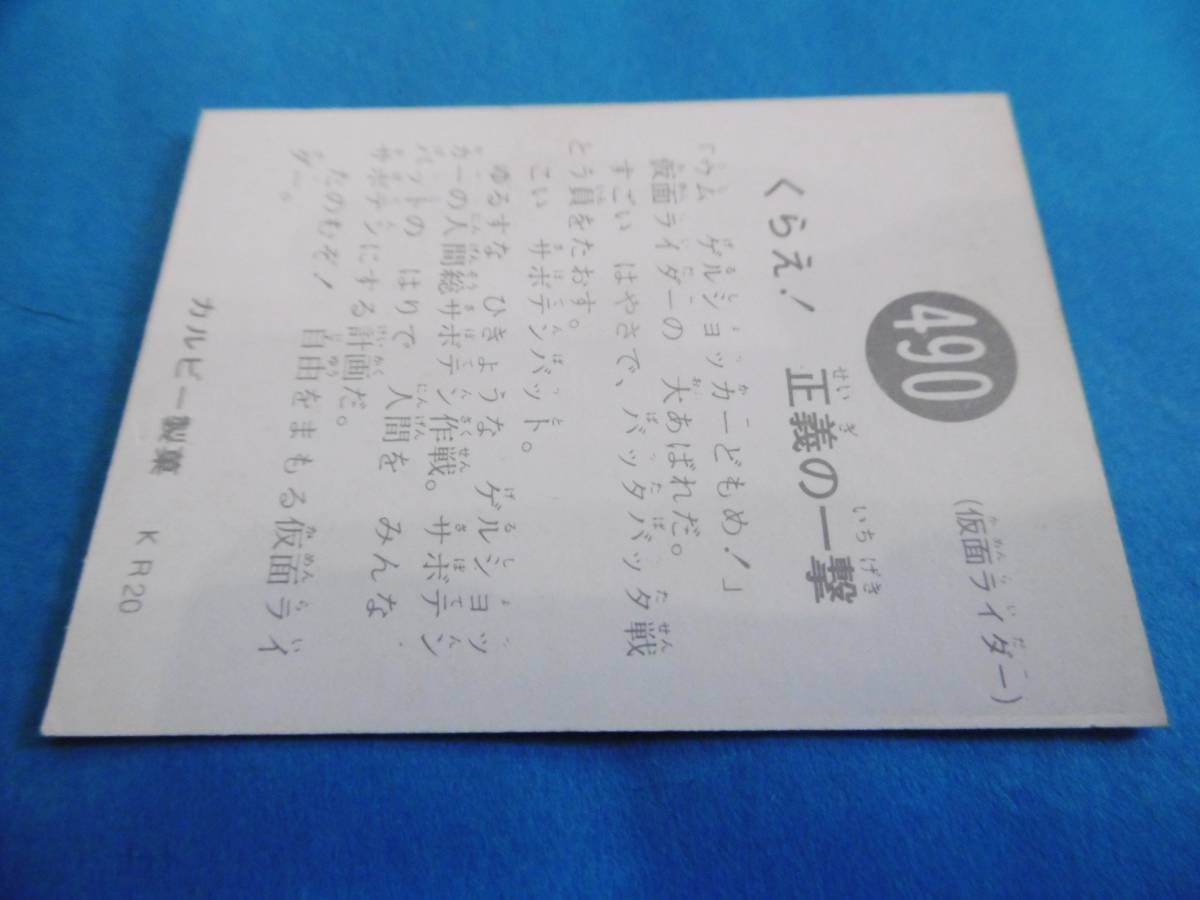 490
(仮面ライダー)
くらえ! 正義の一撃
「ウム ゲルショッカーどもめ!」
仮面ライダーの 大あばれだ。
すごい はやさで、バッタバッタ戦
とう員をたおす。
こい サボテンバット。
ゆるすな ひきような ゲルショッ
カーの人間総サボテン作戦。サボテン
バットの はりで 人間を みんな
サボテンにする計画だ。
たのむぞ! 自由をまもる仮面ライ
ダー。
カルビー製菓 KR20